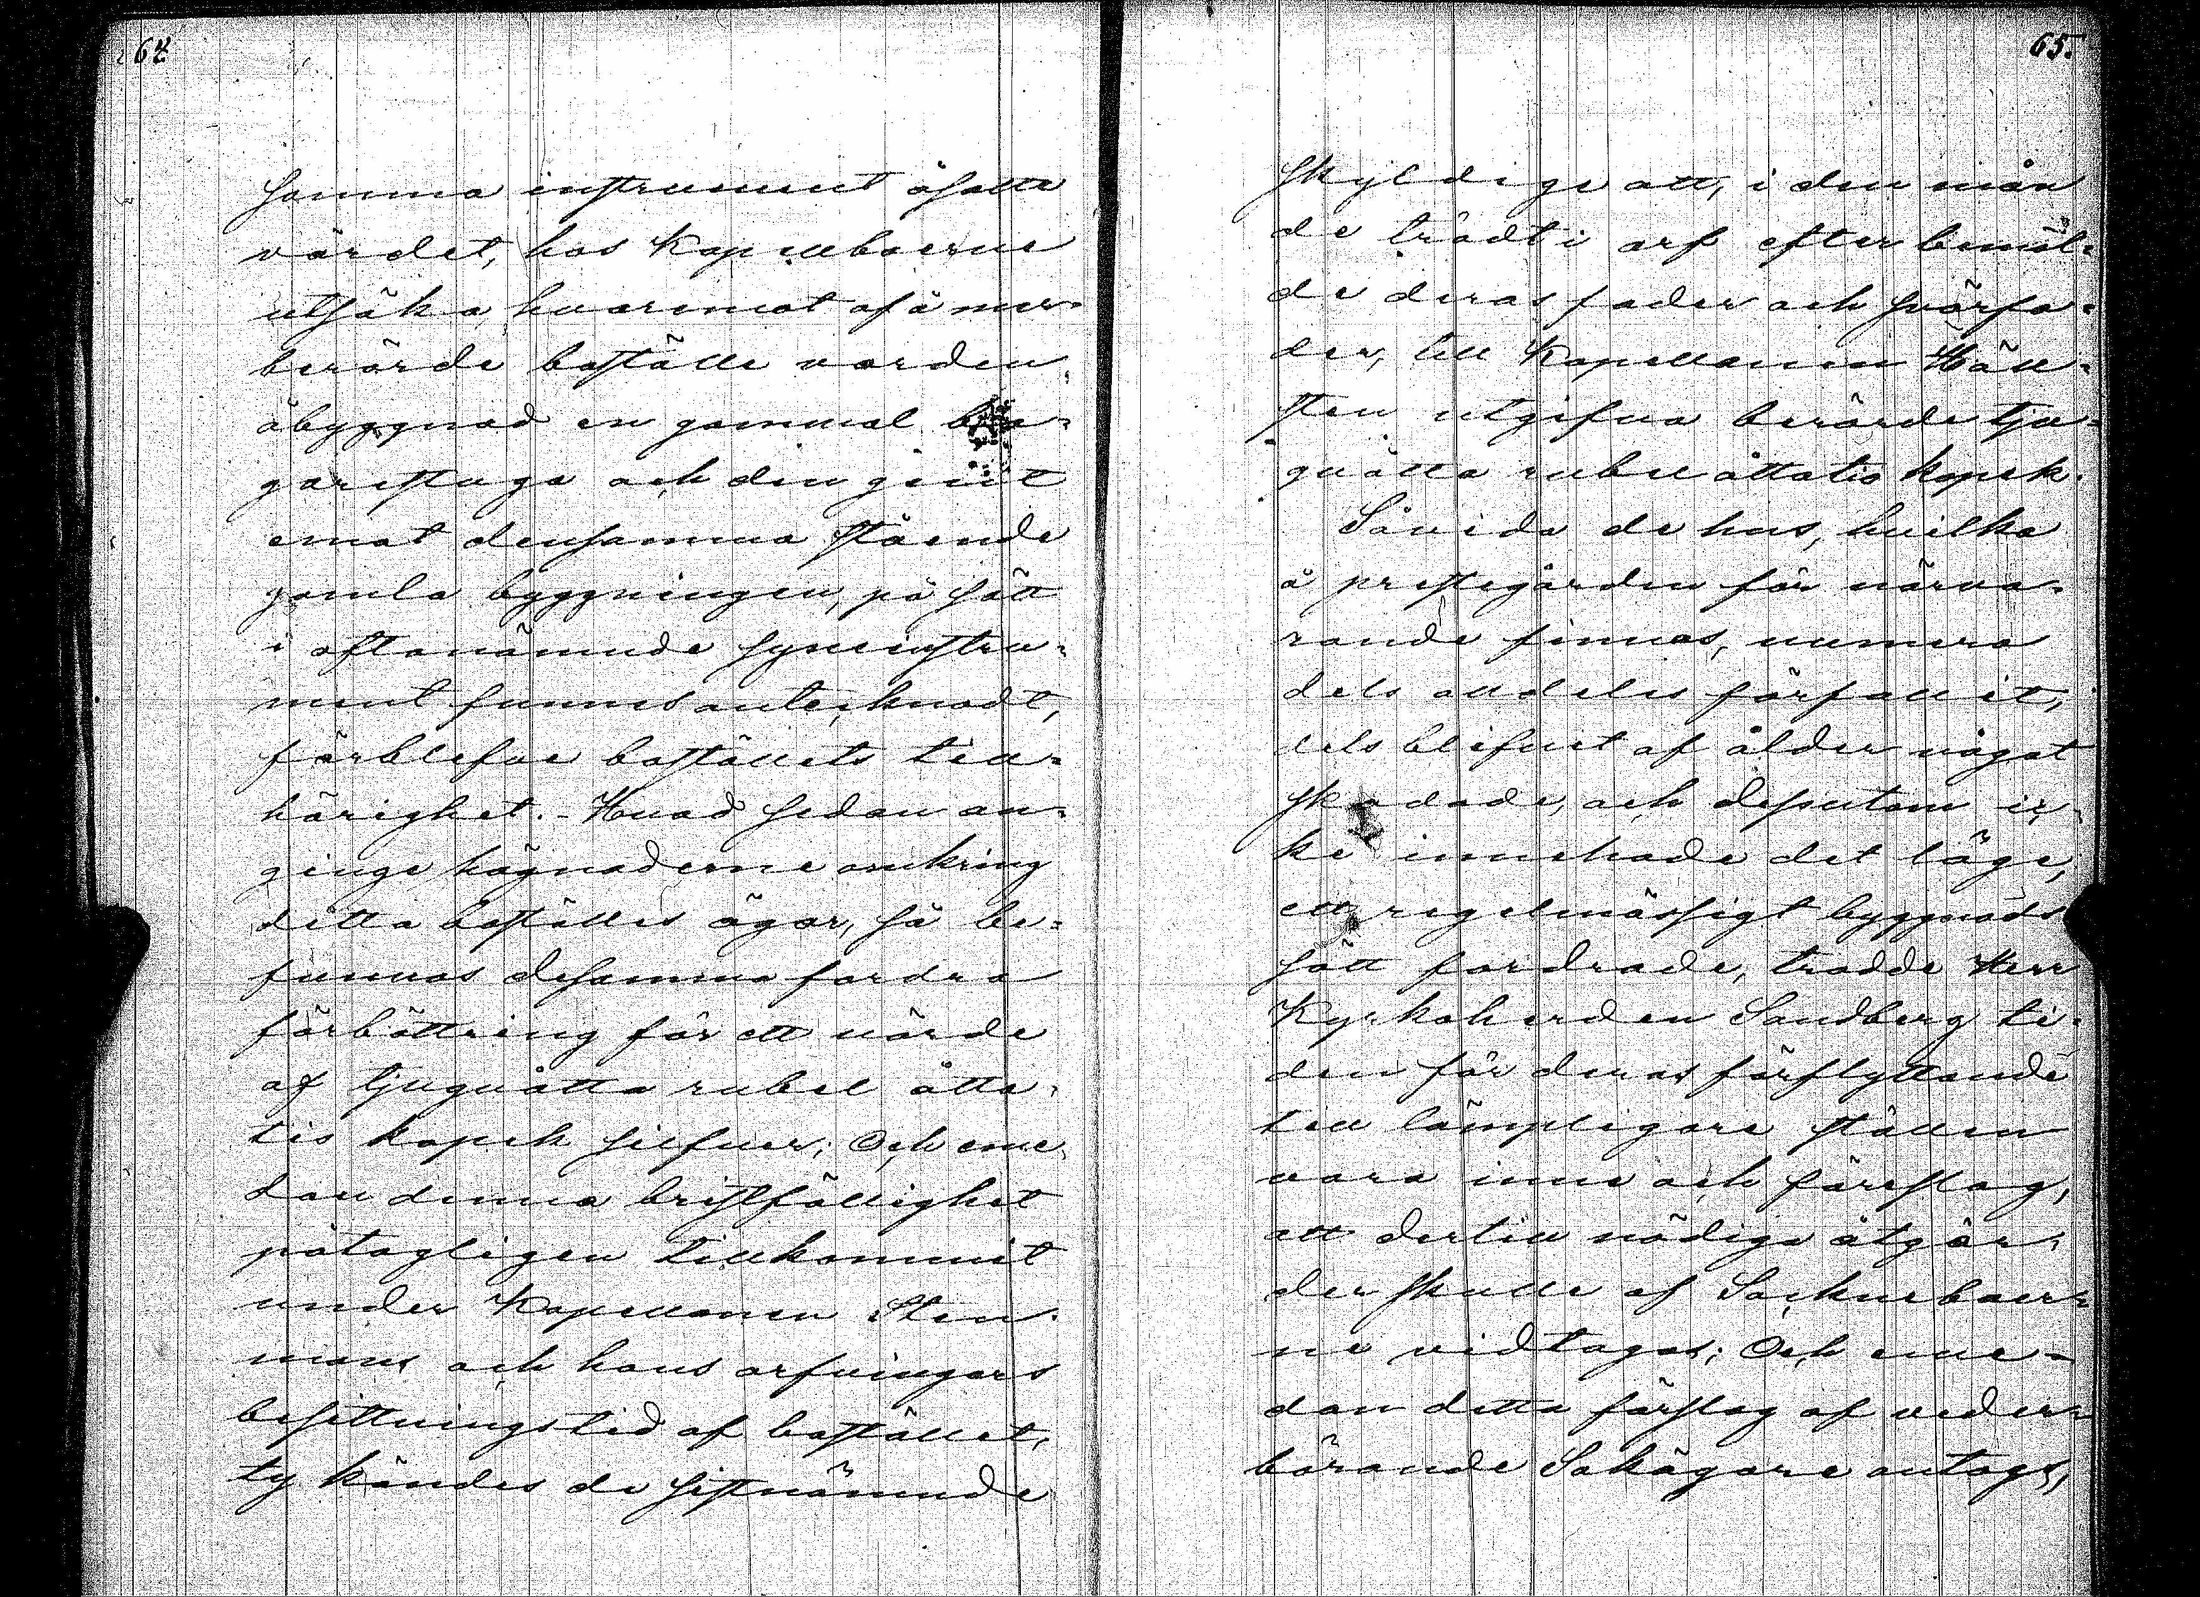 64
samma instrument åsatta
värdet, hos Kapellboerne
utsöka, hvaremot å mer-
berörde boställe varden
åbyggnad en gammal ba-
garestuga och den gent
emot densamma stående
gamla byggningen, på sätt
i oftanämnde syneinstru-
ment funnes antecknadt,
förblefve boställets till-
hörighet. - Hvad sedan an-
ginge hägnaderne omkring
detta boställes ägor, så be-
funnos desamma fordra
förbättring för ett värde
af tjuguåtta rubel åtta-
tio kopek silfver; Och eme-
dan denna bristfällighet
påtagligen tillkommit
under Kapellanen Sten-
mans och hans arfvingars
besittningstid af bostället,
ty kändes de sistnämnde
65.
skyldige att, i den mån
de trädt i arf efter bemäl-
de deras fader och svärfa-
der, till Kapellanen Häll-
sten utgifva berörde tju-
guåtta rubel åttatio kopek.
Såvida de hus, hvilka
å prestegården för närva-
rande finnas, numera
dels alldeles förfallit,
dels blifvit af ålder något
skadade, och dessutom ic-
ke innehade det läge,
ett regelmässigt byggnads
sätt fordrade, trodde Herr
Kyrkoherden Sandberg ti-
den för deras förflyttande
till lämpligare ställen
vara inne och föreslog,
att dertill nödige åtgär-
der skulle af Socknebоer-
ne vidtagas; Och eme-
dan detta förslag af veder-
börande Sakägare antogs,